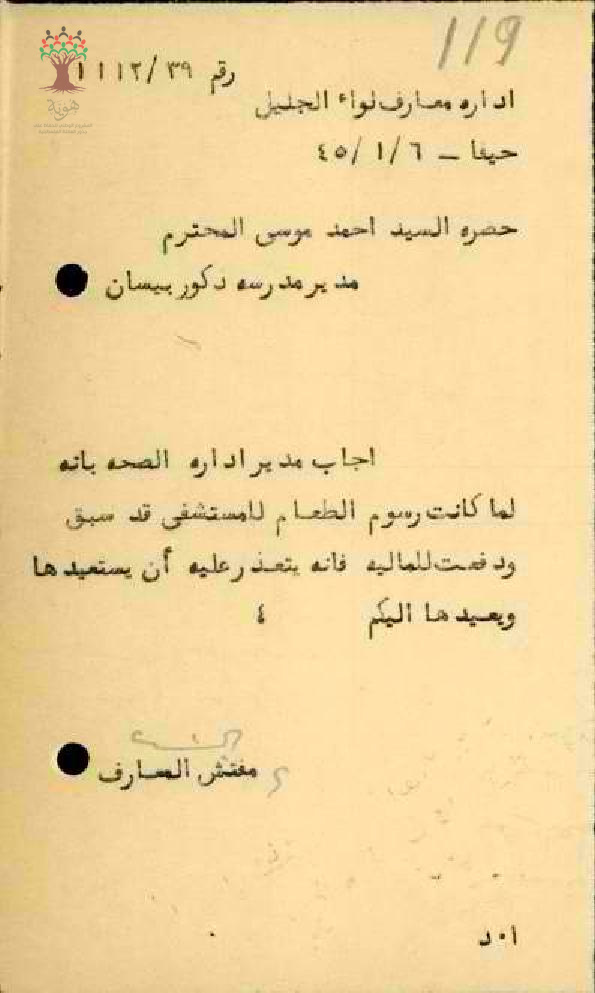 119
رقم ١١١٢/٣٩
اداره معارف لواء الجليل
حيفا - ٤٥/١/٦
حضره السيد احمد موسى المحترم
مدير مدرسه دكور بيسان
اجاب مدير اداره الصحه بانه
لما كانت رسوم الطعام للمستشفى قد سبق
ودفعت للماليه فانه يتعذر عليه أن يستعيدها
ويعيدها اليكم ٤
مفتش المعارف
ا٠د
هوية